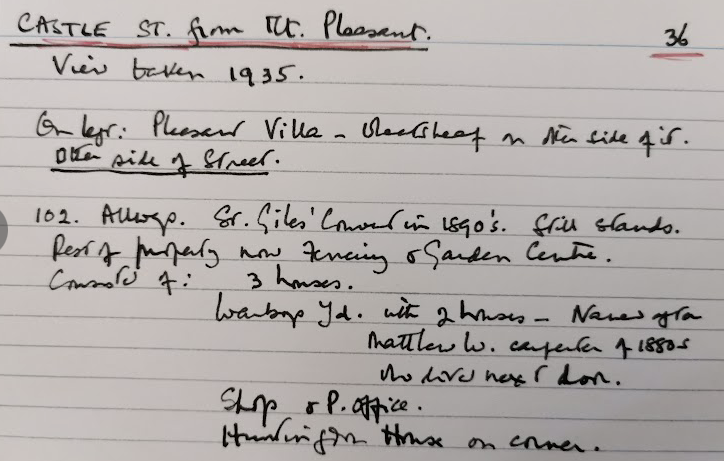 CASTLE ST. from Mt. Pleasant. 36
View taken 1935.
On left: Pleasant Villa - Wheatsheaf on other side of it.
Other side of Street.
102. St. Giles' Convent in 1890's. Still stands.
Rest of property now Fencing & Garden Centre.
Consists of: 3 houses.
Warbops Yd. with 2 houses - Named after
Matthew W. carpenter of 1880s
who lived next door.
Shop & P. Office.
Huntingdon House on corner.